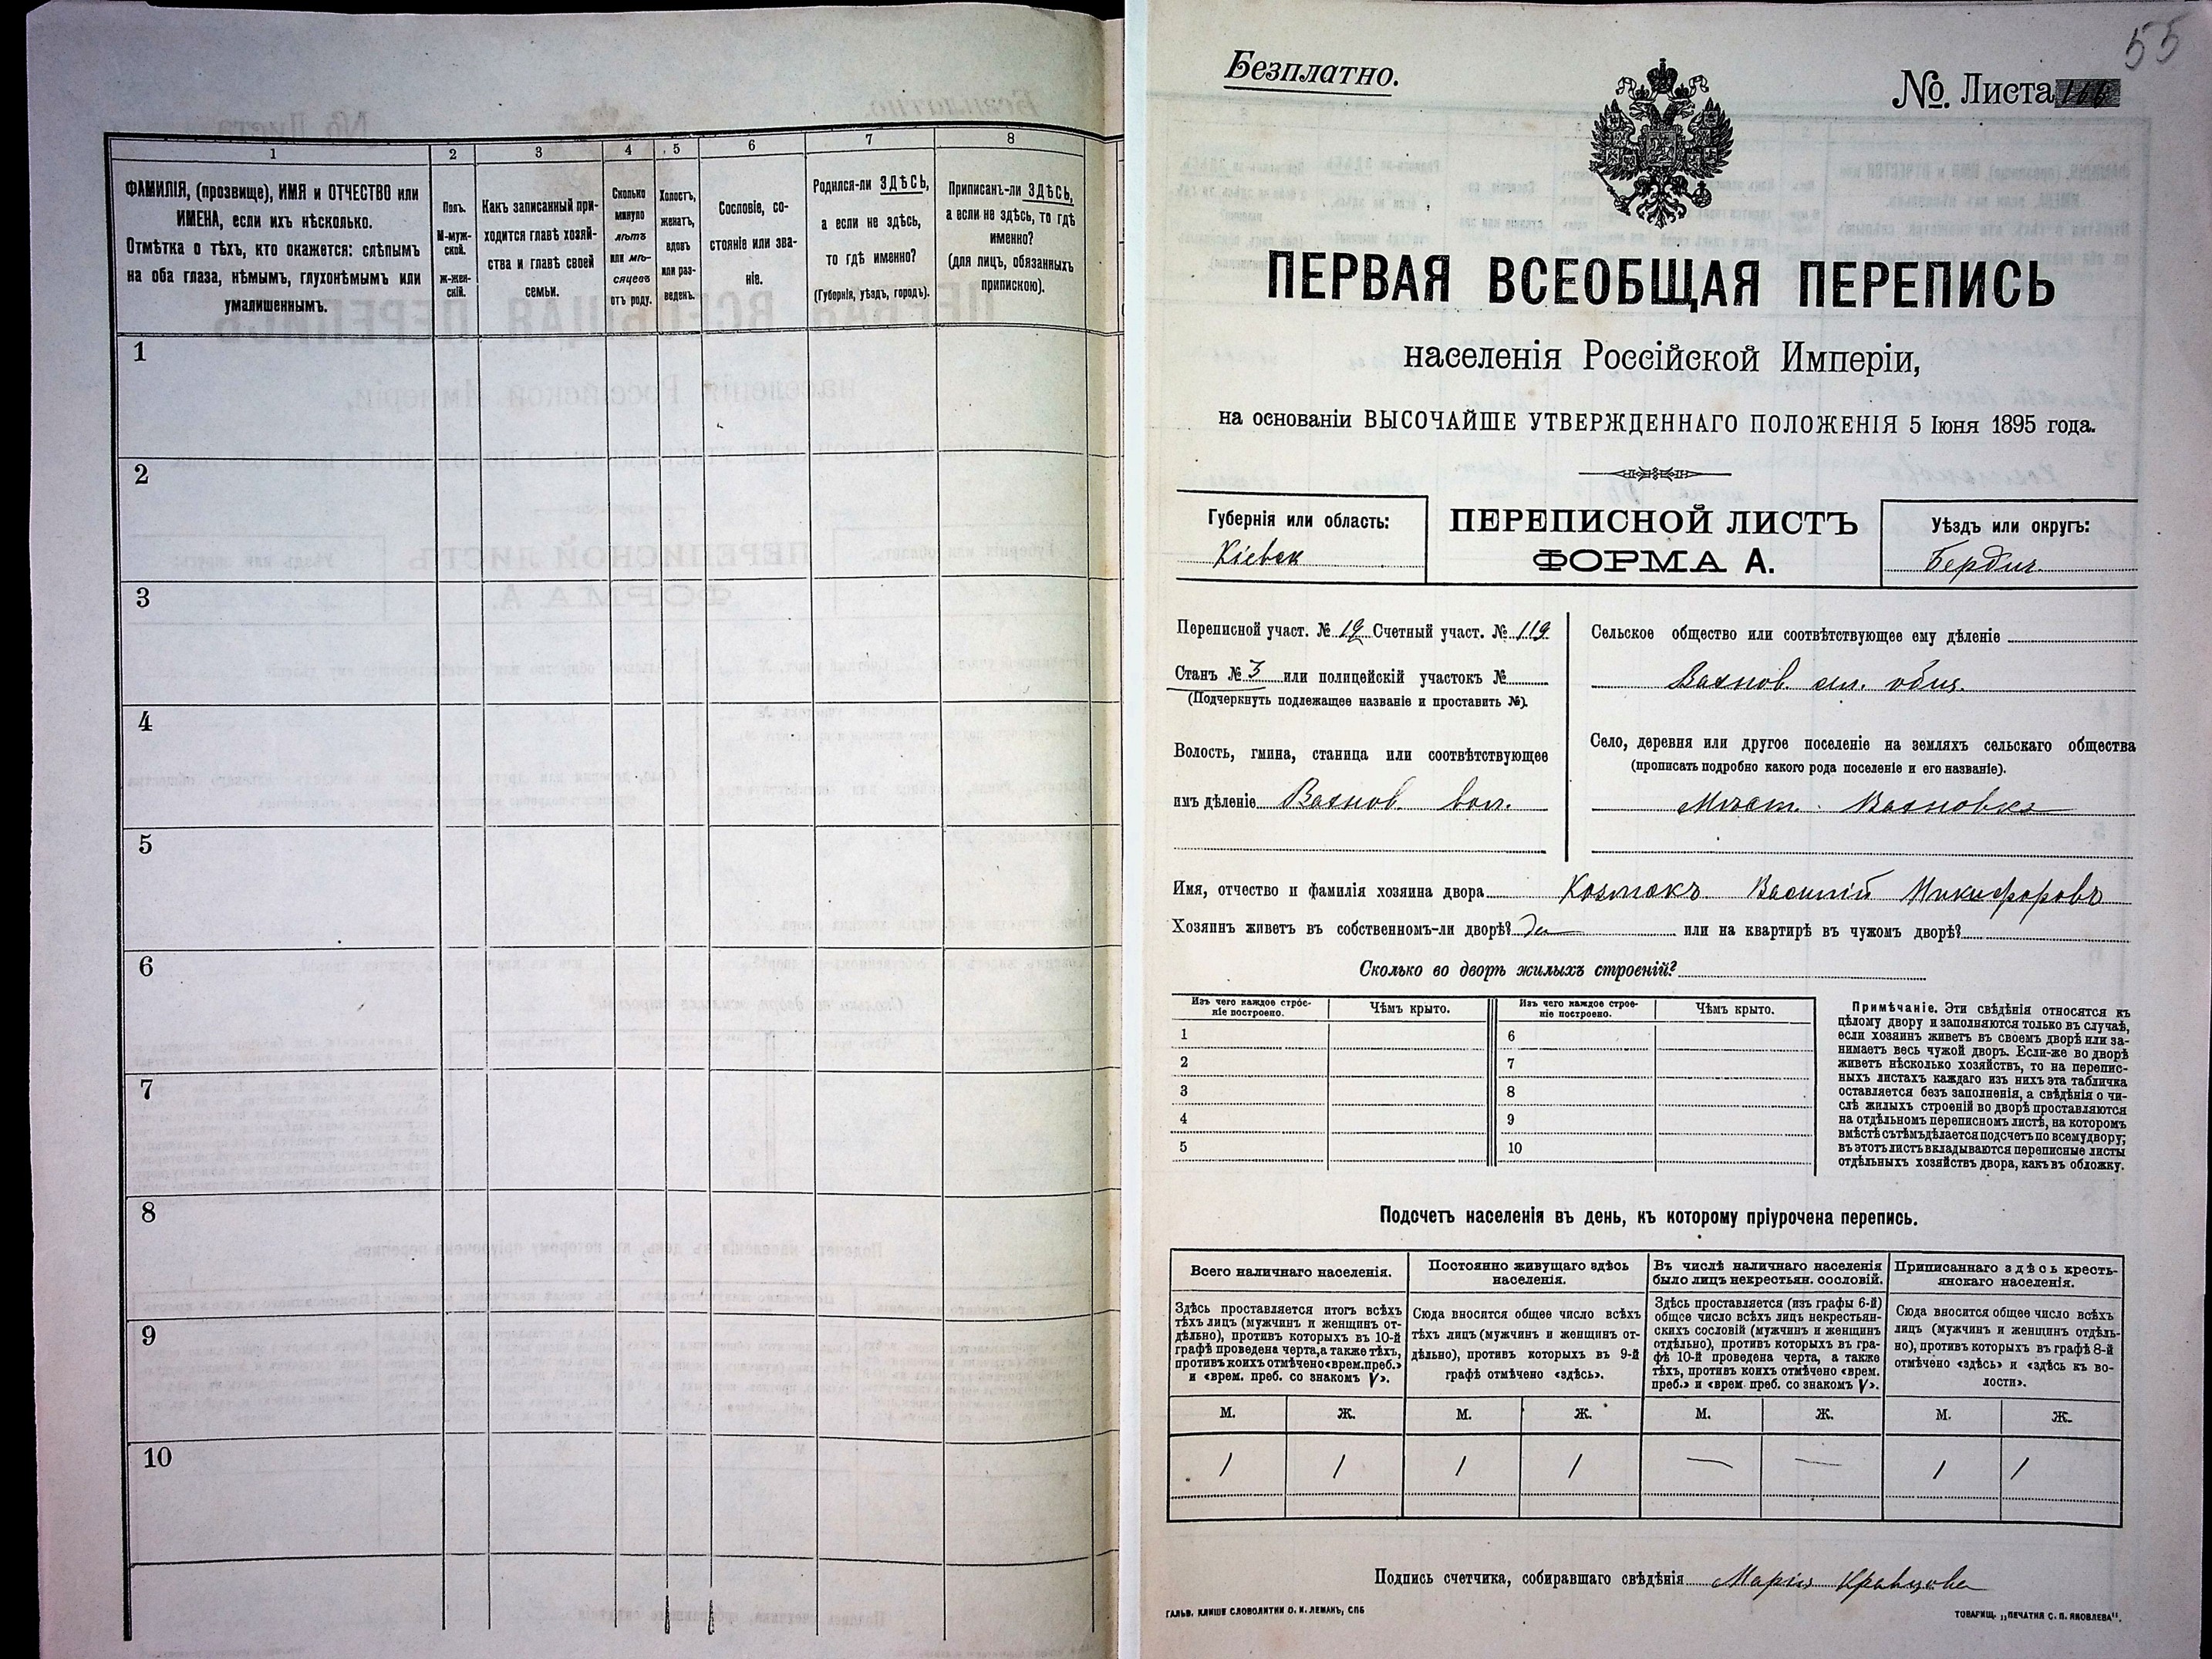 1
2
3
4
5
6
7
8
ФАМИЛІЯ, (прозвище), ИМЯ и ОТЧЕСТВО или
ИМЕНА, если ихъ нѣсколько.
Отмѣтка о тѣхъ, кто окажется: слѣпымъ
на оба глаза, нѣмымъ, глухонѣмымъ или
умалишеннымъ.
Полъ.
М-муж-
ской.
Ж-жен-
скій.
Какъ записанный при-
ходится главѣ хозяй-
ства и главѣ своей
семьи.
Сколько
минуло
лѣтъ
или мѣ-
сяцевъ
отъ роду.
Холостъ,
женатъ,
вдовъ
или раз-
веденъ.
Сословіе, со-
стояніе или зва-
ніе.
Родился-ли ЗДѢСЬ,
а если не здѣсь,
то гдѣ именно?
(Губернія, уѣздъ, городъ).
Приписанъ-ли ЗДѢСЬ,
а если не здѣсь, то гдѣ
именно?
(для лицъ, обязанныхъ
припискою).
1
2
3
4
5
6
7
8
9
10
55
Безплатно.
№. Листа
ПЕРВАЯ ВСЕОБЩАЯ ПЕРЕПИСЬ
населенія Россійской Имперіи,
на основаніи ВЫСОЧАЙШЕ УТВЕРЖДЕННАГО ПОЛОЖЕНІЯ 5 Іюня 1895 года.
Губернія или область:
Кіевск
ПЕРЕПИСНОЙ ЛИСТЪ
ФОРМА А.
Уѣздъ или округъ:
Бердич.
Переписной участ. № 12 Счетный участ. № 119
Станъ № 3 или полицейскій участокъ №
(Подчеркнуть подлежащее названіе и проставить №).
Волость, гмина, станица или соотвѣтствующее
имъ дѣленіе Вахнов. вол.
Сельское общество или соотвѣтствующее ему дѣленіе
Вахнов. сел. общ.
Село, деревня или другое поселеніе на земляхъ сельскаго общества
(прописать подробно какого рода поселеніе и его названіе).
Мѣст. Вахновка
Имя, отчество и фамилія хозяина двора Козмакъ Василій Никифоровъ
Хозяинъ живетъ въ собственномъ-ли дворѣ? Да или на квартирѣ въ чужомъ дворѣ?
Сколько во дворѣ жилыхъ строеній?
Изъ чего каждое строе-
ніе построено.
Чѣмъ крыто.
Изъ чего каждое строе-
ніе построено.
Чѣмъ крыто.
1
6
2
7
3
8
4
9
5
10
Примѣчаніе. Эти свѣдѣнія относятся къ
цѣлому двору и заполняются только въ случаѣ,
если хозяинъ живетъ въ своемъ дворѣ или за-
нимаетъ весь чужой дворъ. Если-же во дворѣ
живетъ нѣсколько хозяйствъ, то на перепис-
ныхъ листахъ каждаго изъ нихъ эта табличка
оставляется безъ заполненія, а свѣдѣнія о чи-
слѣ жилыхъ строеній во дворѣ проставляются
на отдѣльномъ переписномъ листѣ, на которомъ
вмѣстѣ съ тѣмъ дѣлается подсчетъ по всему двору;
въ этотъ листъ вкладываются переписные листы
отдѣльныхъ хозяйствъ двора, какъ въ обложку.
Подсчетъ населенія въ день, къ которому пріурочена перепись.
Всего наличнаго населенія.
Постоянно живущаго здѣсь
населенія.
Въ числѣ наличнаго населенія
было лицъ некрестьян. сословій.
Приписаннаго здѣсь кресть-
янскаго населенія.
Здѣсь проставляется итогъ всѣхъ
тѣхъ лицъ (мужчинъ и женщинъ от-
дѣльно), противъ которыхъ въ 10-й
графѣ проведена черта, а также тѣхъ,
противъ коихъ отмѣчено «врем. преб.»
и «врем. преб. со знакомъ V».
Сюда вносится общее число всѣхъ
тѣхъ лицъ (мужчинъ и женщинъ от-
дѣльно), противъ которыхъ въ 9-й
графѣ отмѣчено «здѣсь».
Здѣсь проставляется (изъ графы 6-й)
общее число всѣхъ лицъ некрестьян-
скихъ сословій (мужчинъ и женщинъ
отдѣльно), противъ которыхъ въ гра-
фѣ 10-й проведена черта, а также
тѣхъ, противъ коихъ отмѣчено «врем.
преб.» и «врем. преб. со знакомъ V».
Сюда вносится общее число всѣхъ
лицъ (мужчинъ и женщинъ отдѣль-
но), противъ которыхъ въ графѣ 8-й
отмѣчено «здѣсь» и «здѣсь къ во-
лости».
М. Ж. М. Ж. М. Ж. М. Ж.
1 1 1 1 — — 1 1
Подпись счетчика, собиравшаго свѣдѣнія Марія Кравцова
ГАЛЬВ. КЛИШЕ СЛОВОЛИТНИ О. И. ЛЕМАНЪ, СПБ
ТОВАРИЩ. „ПЕЧАТНЯ С. П. ЯКОВЛЕВА".